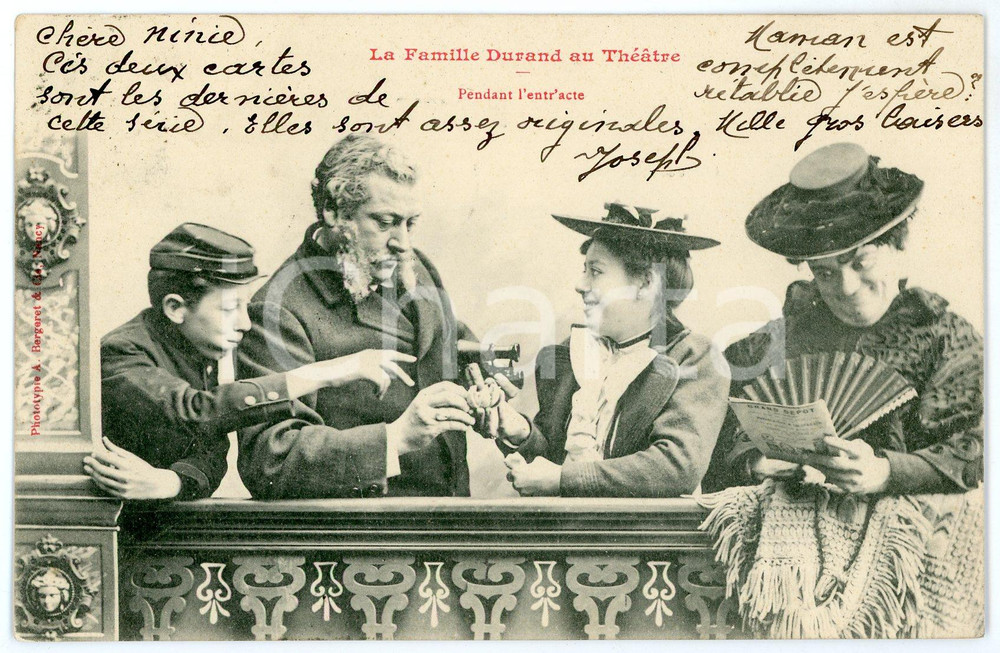 La Famille Durand au Théâtre
Pendant l'entr'acte
chère Ninie,
Cés deux cartes
sont les dernières de
cette série. Elles sont assez originales. Mille gros baisers
Joseph.
Maman est
complètement
rétablie j'espère?
Phototypie A. Bergeret & Cie, Nancy
GRAND DEPOT
Charta